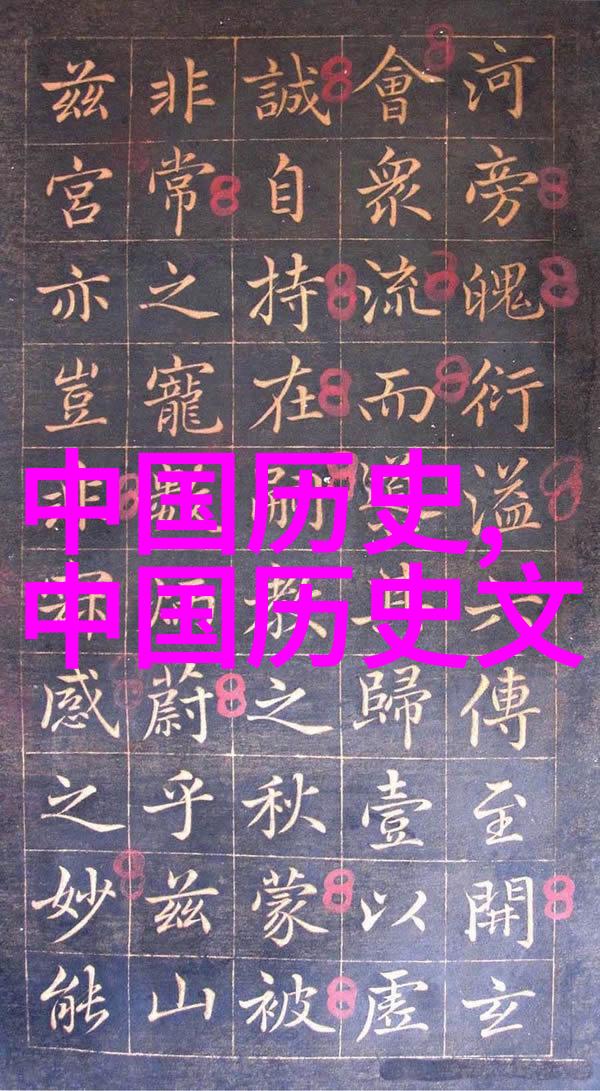 河旁魄衍溢傳至開玄
會衆流而歸壹以虛
誠自持在嗣教之秋蒙被
非常之寵蔚乎兹山
兹宮亦豈非感之妙能
中国历史,
中国历史文